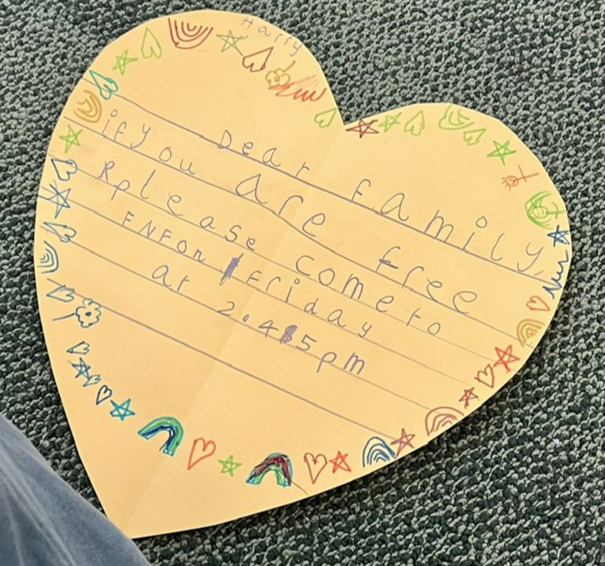 Harry
Dear family,
if you are free
Rplease come to
ENFon Friday
at 2.45pm